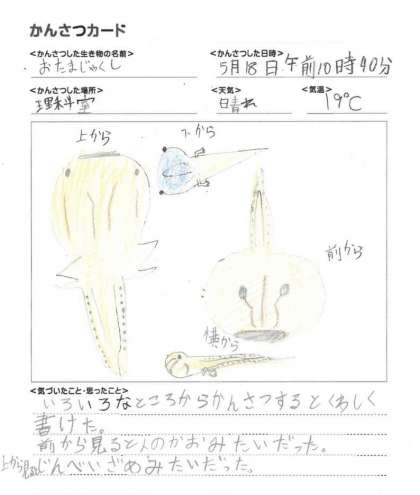 かんさつカード
<かんさつした生き物の名前>
おたまじゃくし
<かんさつした日時>
5月18日 午前10時40分
<かんさつした場所>
理科室
<天気>
晴れ
<気温>
19℃
上から
下から
前から
横から
<気づいたこと・思ったこと>
いろいろなところからかんさつするとくわしく
書けた。
前から見ると人のかおみたいだった。
上から見るとじんべいざめみたいだった。